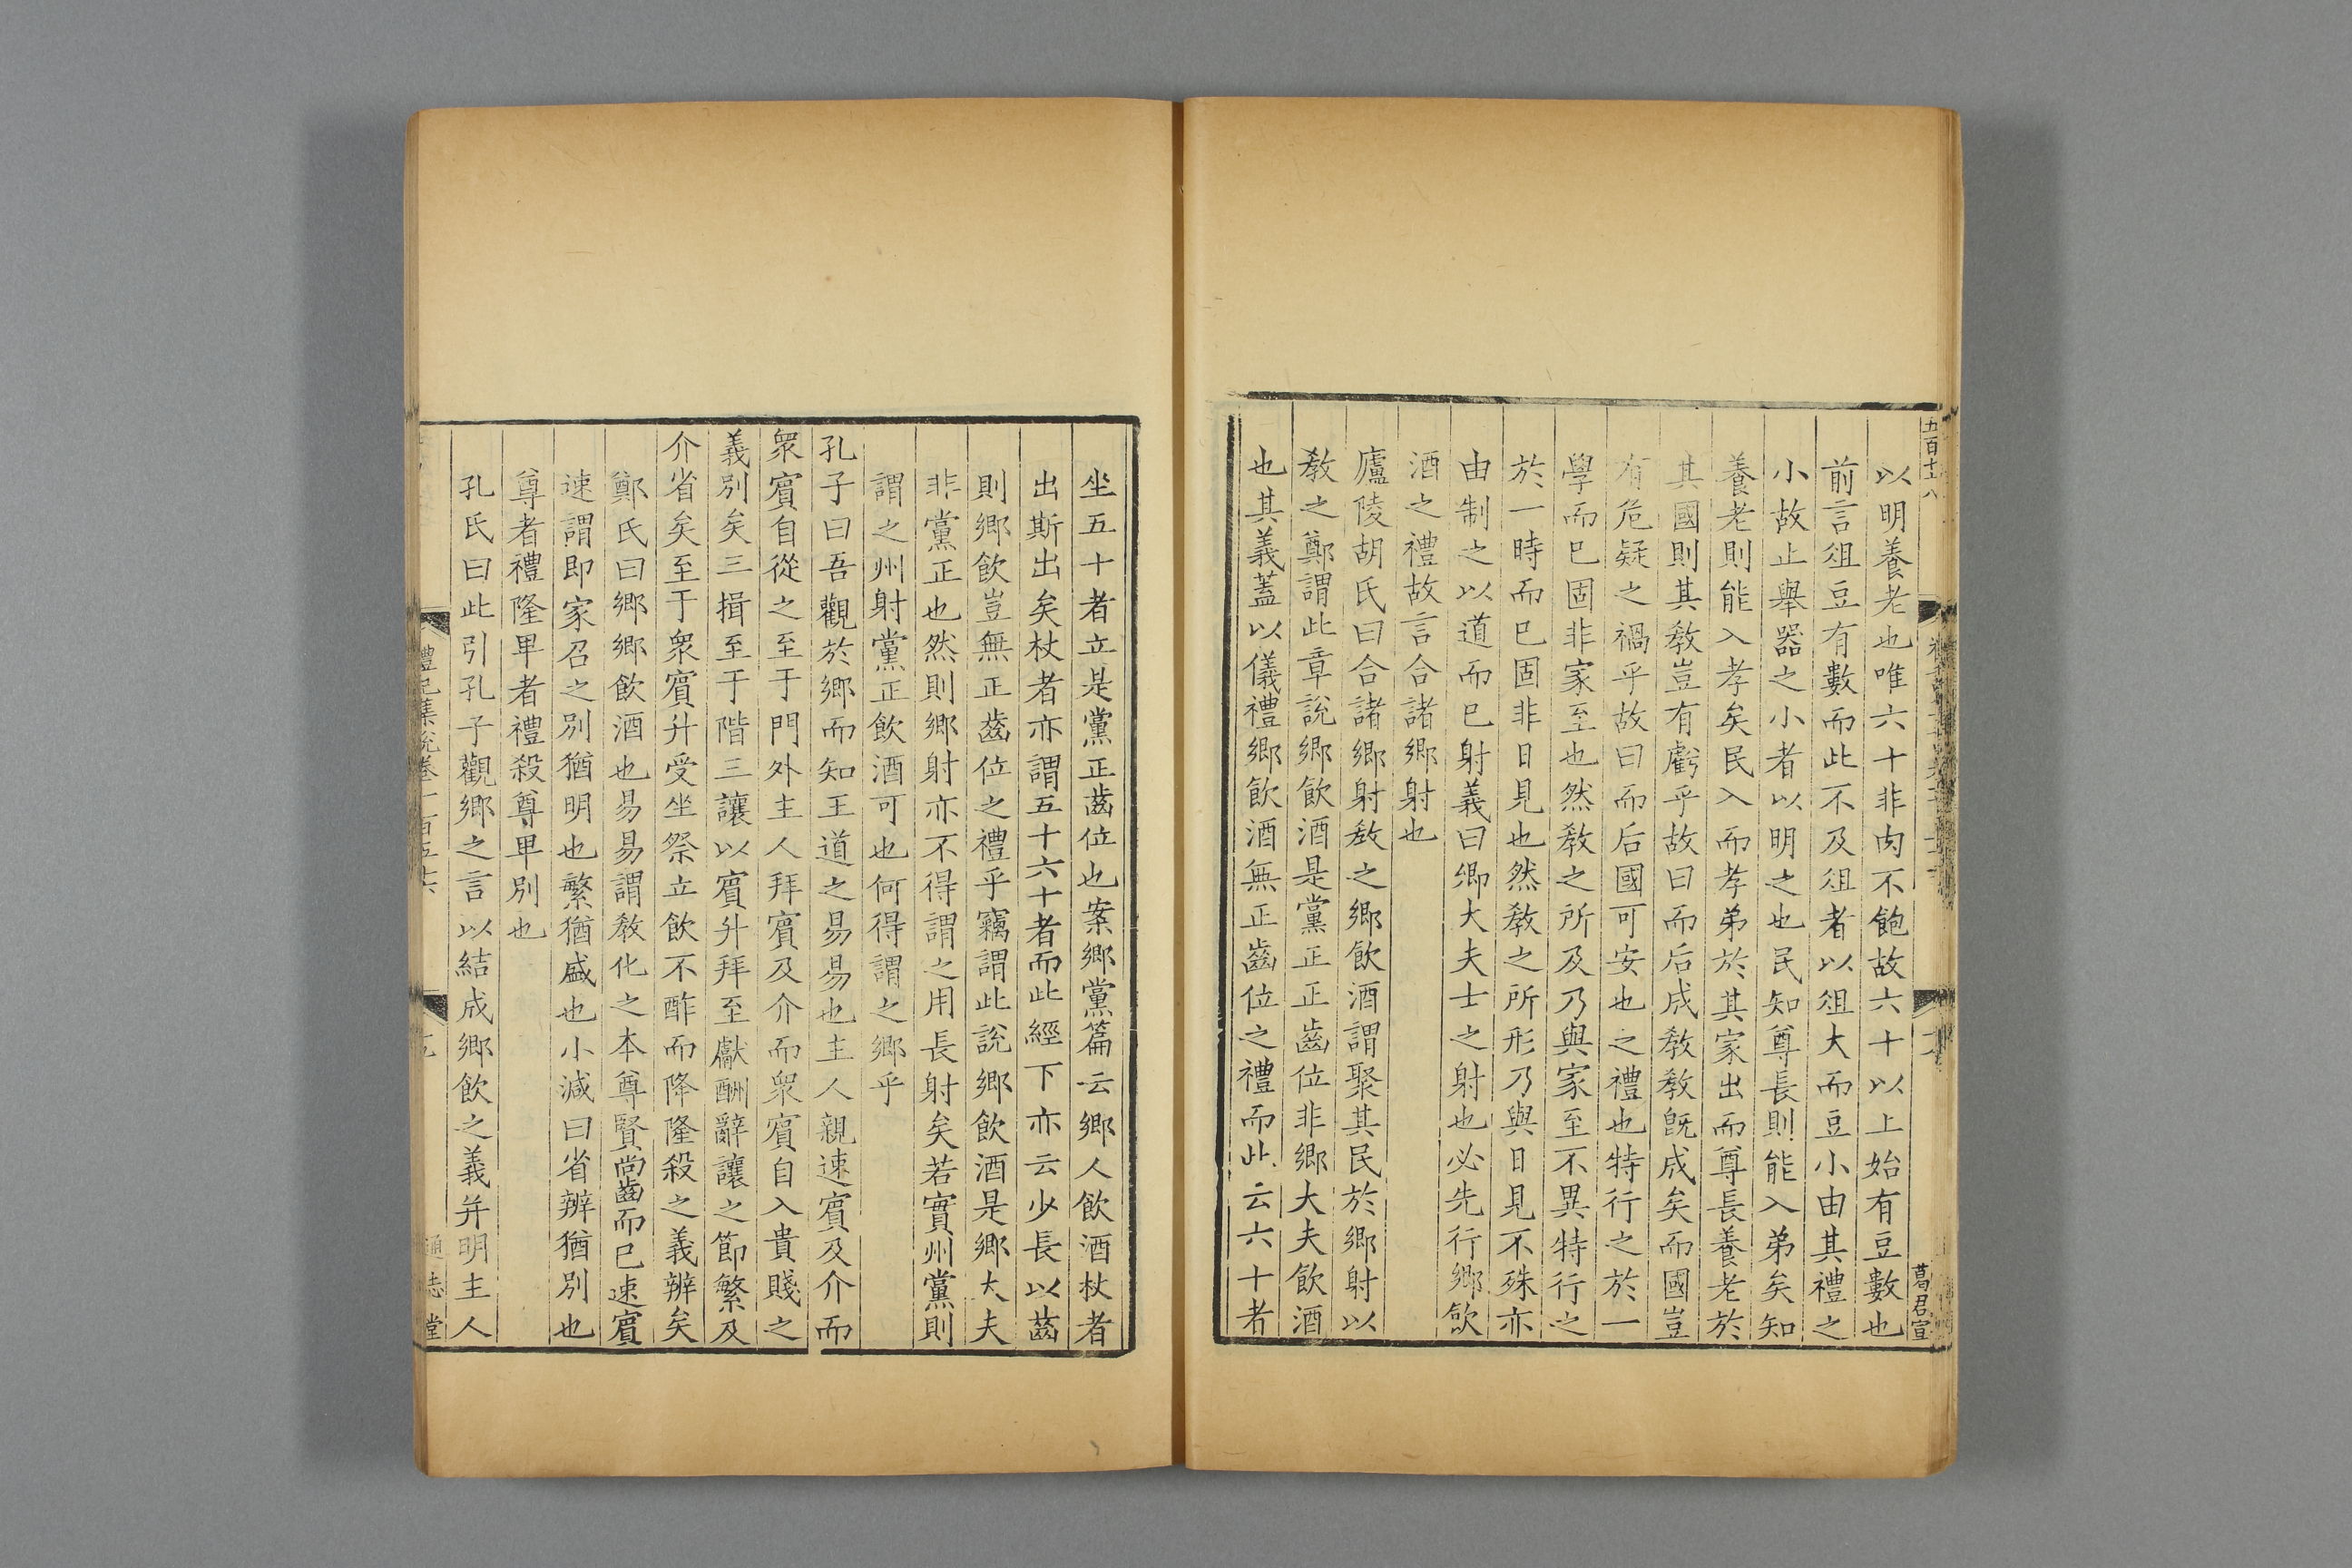 五百十八
葛君宣
以明養老也唯六十非肉不飽故六十以上始有豆數也
前言俎豆有數而此不及俎者以俎大而豆小由其禮之
小故止舉器之小者以明之也民知尊長則能入弟矣知
養老則能入孝矣民入而孝弟於其家出而尊長養老於
其國則其教豈有虧乎故曰而后成教教旣成矣而國豈
有危疑之禍乎故曰而后國可安也之禮也特行之於一
學而已固非家至也然教之所及乃與家至不異特行之
於一時而已固非日見也然教之所形乃與日見不殊亦
由制之以道而已射義曰鄉大夫士之射也必先行鄉飲
酒之禮故言合諸鄉射也
廬陵胡氏曰合諸鄉射教之鄉飲酒謂聚其民於鄉射以
教之鄭謂此章說鄉飲酒是黨正正齒位非鄉大夫飲酒
也其義蓋以儀禮鄉飲酒無正齒位之禮而此云六十者
坐五十者立是黨正齒位也案鄉黨篇云鄉人飲酒杖者
出斯出矣杖者亦謂五十六十者而此經下亦云少長以齒
則鄉飲豈無正齒位之禮乎竊謂此說鄉飲酒是鄉大夫
非黨正也然則鄉射亦不得謂之用長射矣若實州黨則
謂之州射黨正飲酒可也何得謂之鄉乎
孔子曰吾觀於鄉而知王道之易易也主人親速賓及介而
衆賓自從之至于門外主人拜賓及介而衆賓自入貴賤之
義別矣三揖至于階三讓以賓升拜至獻酬辭讓之節繁及
介省矣至于衆賓升受坐祭立飲不酢而降隆殺之義辨矣
鄭氏曰鄉鄉飲酒也易易謂教化之本尊賢尚齒而已速賓
速謂即家召之別猶明也繁猶盛也小減曰省辨猶別也
尊者禮隆卑者禮殺尊卑別也
孔氏曰此引孔子觀鄉之言以結成鄉飲之義并明主人
禮記集說卷一百五十六
通志堂